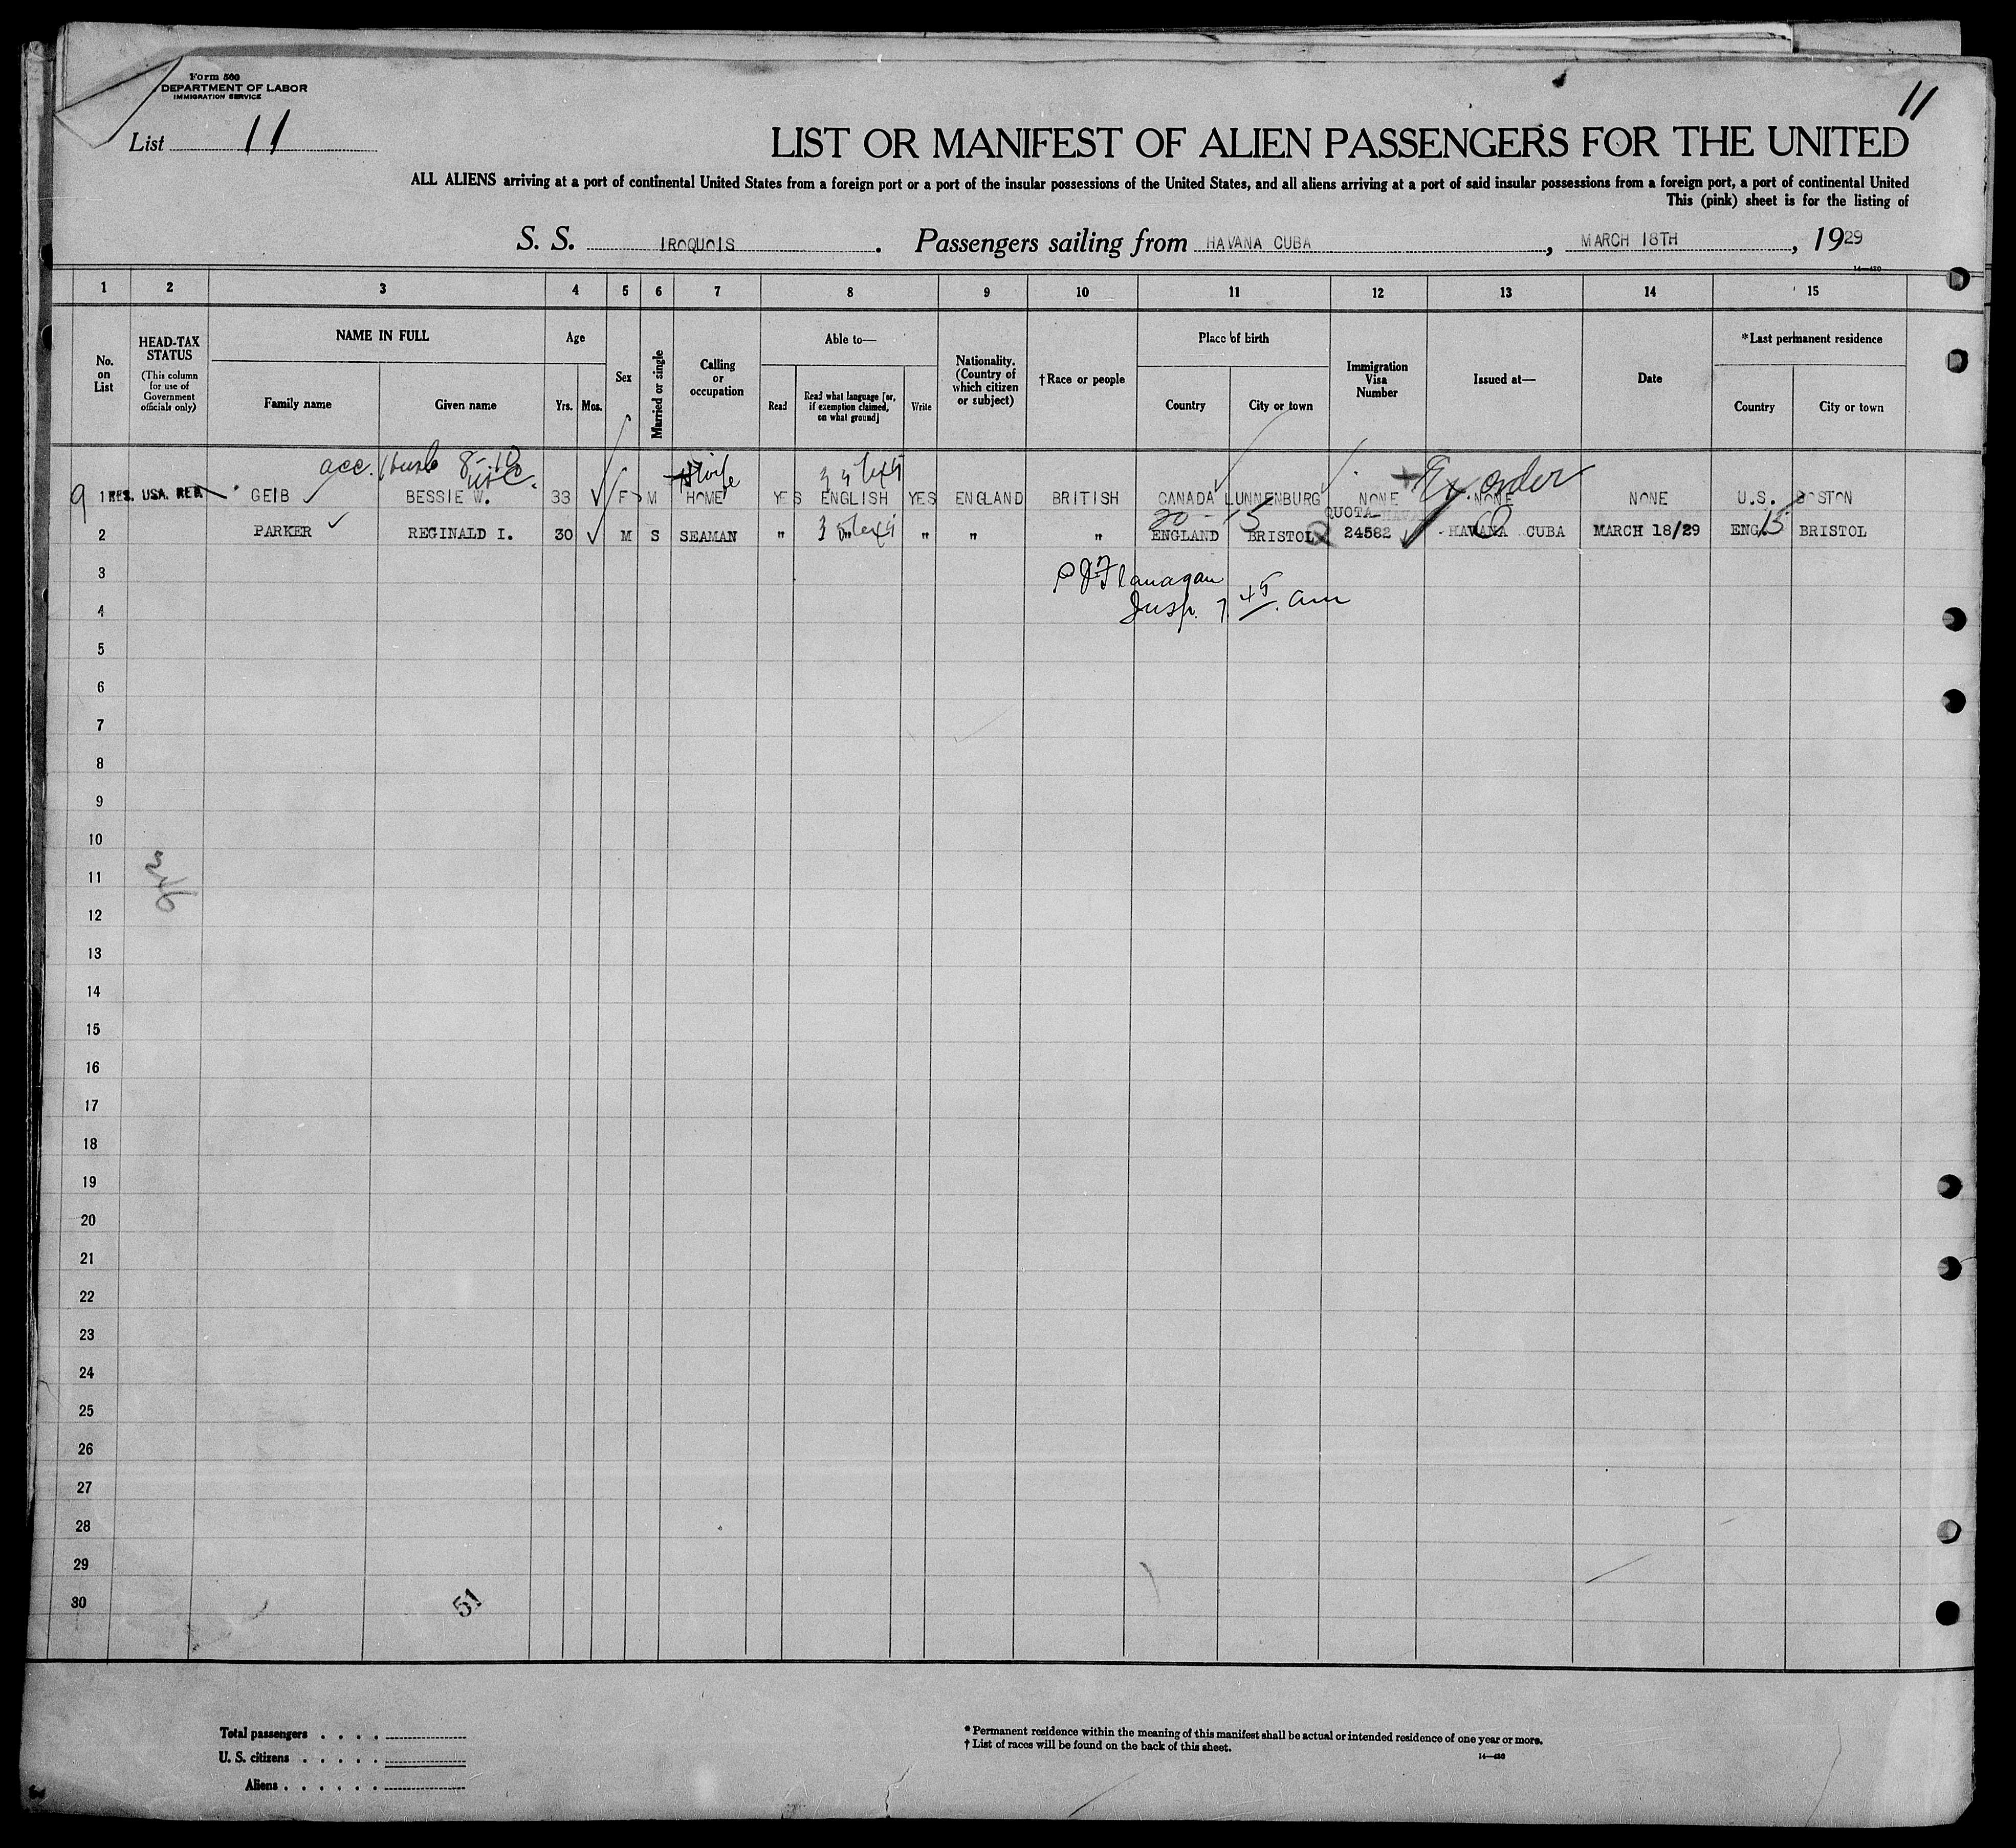 Form 500
DEPARTMENT OF LABOR
IMMIGRATION SERVICE
11
List 11
LIST OR MANIFEST OF ALIEN PASSENGERS FOR THE UNITED
ALL ALIENS arriving at a port of continental United States from a foreign port or a port of the insular possessions of the United States, and all aliens arriving at a port of said insular possessions from a foreign port, a port of continental United
This (pink) sheet is for the listing of
S. S. IROQUOIS. Passengers sailing from HAVANA CUBA, MARCH 18TH, 1929
14—430
1 2 3 4 5 6 7 8 9 10 11 12 13 14 15
No. on List
HEAD-TAX STATUS (This column for use of Government officials only)
NAME IN FULL
Family name Given name
Age
Yrs. Mos.
Sex
Married or single
Calling or occupation
Able to—
Read Read what language [or, if exemption claimed, on what ground] Write
Nationality. (Country of which citizen or subject)
†Race or people
Place of birth
Country City or town
Immigration Visa Number
Issued at—
Date
*Last permanent residence
Country City or town
acc. husb 8-10 USC. Hwife Ex. order
9 1 RES. USA. RET. GEIB BESSIE W. 33 F M HOME YES ENGLISH YES ENGLAND BRITISH CANADA LUNNENBURG NONE NONE NONE U.S. BOSTON
20 - 15 QUOTA- 15
2 PARKER REGINALD I. 30 M S SEAMAN " " " " " ENGLAND BRISTOL 24582 HAVANA CUBA MARCH 18/29 ENG. BRISTOL
3 PJ Flanagan
4 Insp. 7.45 am
5
6
7
8
9
10
11
12
13
14
15
16
17
18
19
20
21
22
23
24
25
26
27
28
29
30
51
Total passengers . . . .
U. S. citizens . . . . .
Aliens . . . . . .
*Permanent residence within the meaning of this manifest shall be actual or intended residence of one year or more.
†List of races will be found on the back of this sheet.
14—430